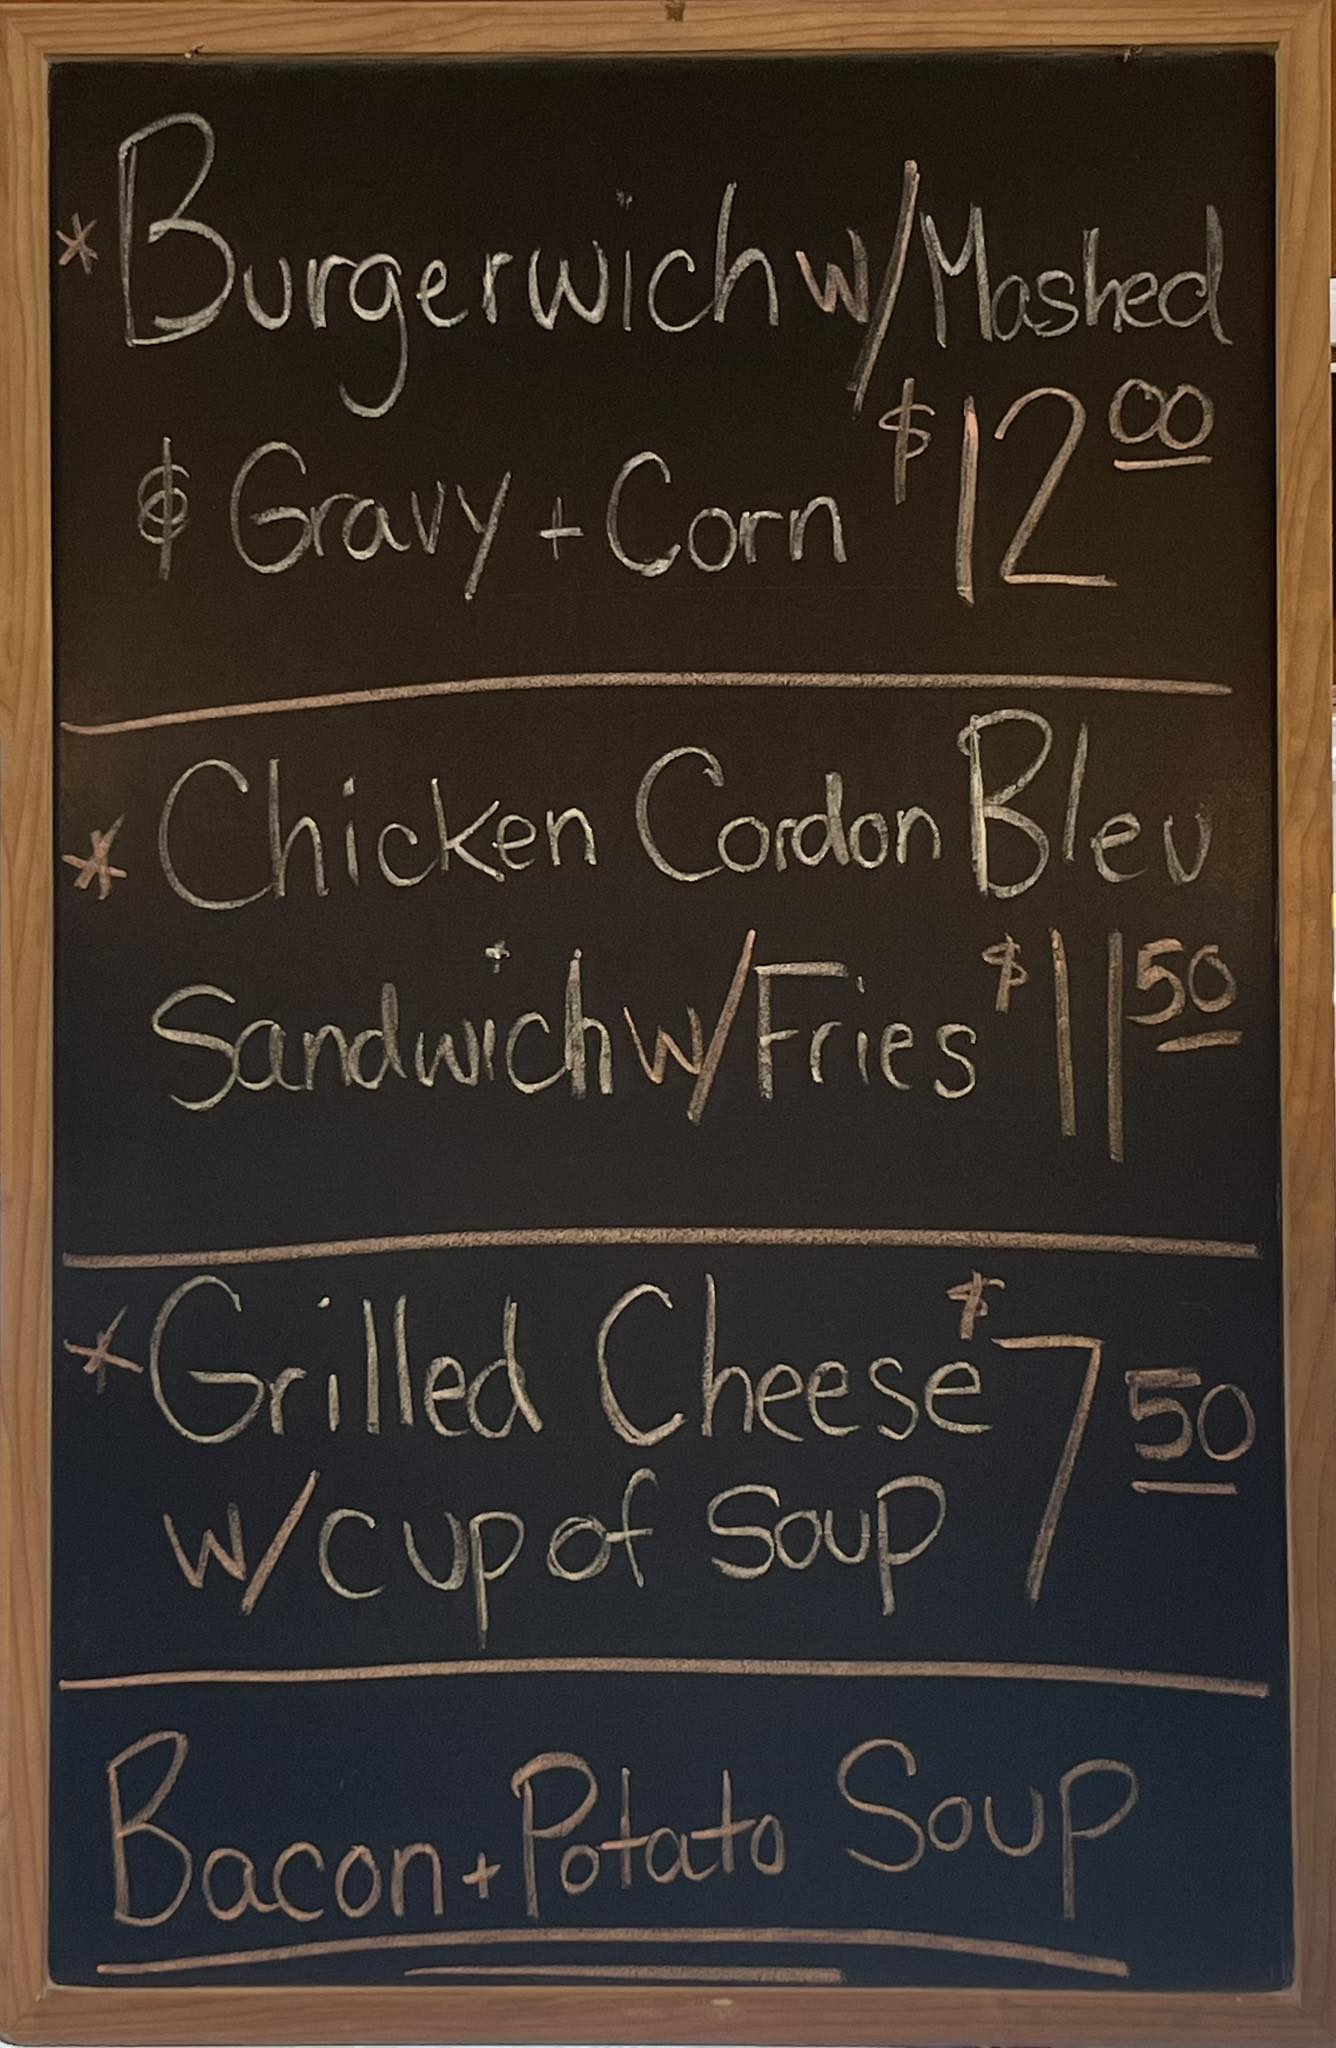 * Burgerwich w/Mashed
& Gravy + Corn $12 00
* Chicken Cordon Bleu
Sandwich w/Fries $11 50
* Grilled Cheese $7 50
w/cup of Soup
Bacon + Potato Soup